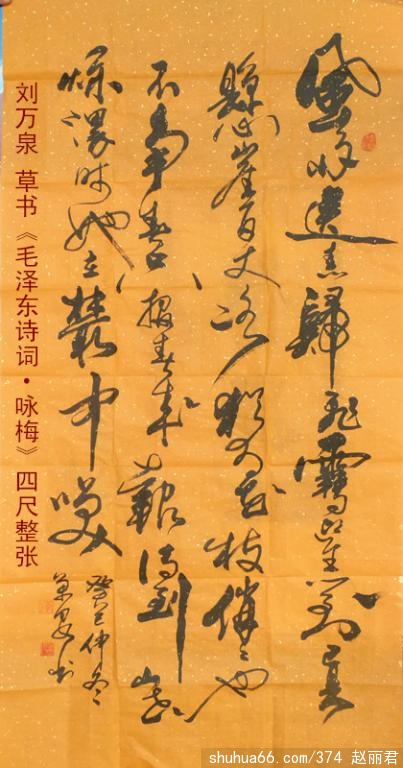 風雨送春歸飛雪迎春到已是
懸崖百丈冰猶有花枝俏〻也
不爭春只把春來報待到山花
爛漫時她在叢中笑
癸巳仲冬
萬泉书
刘万泉 草书《毛泽东诗词·咏梅》四尺整张
shuhua66.com/374 赵丽君